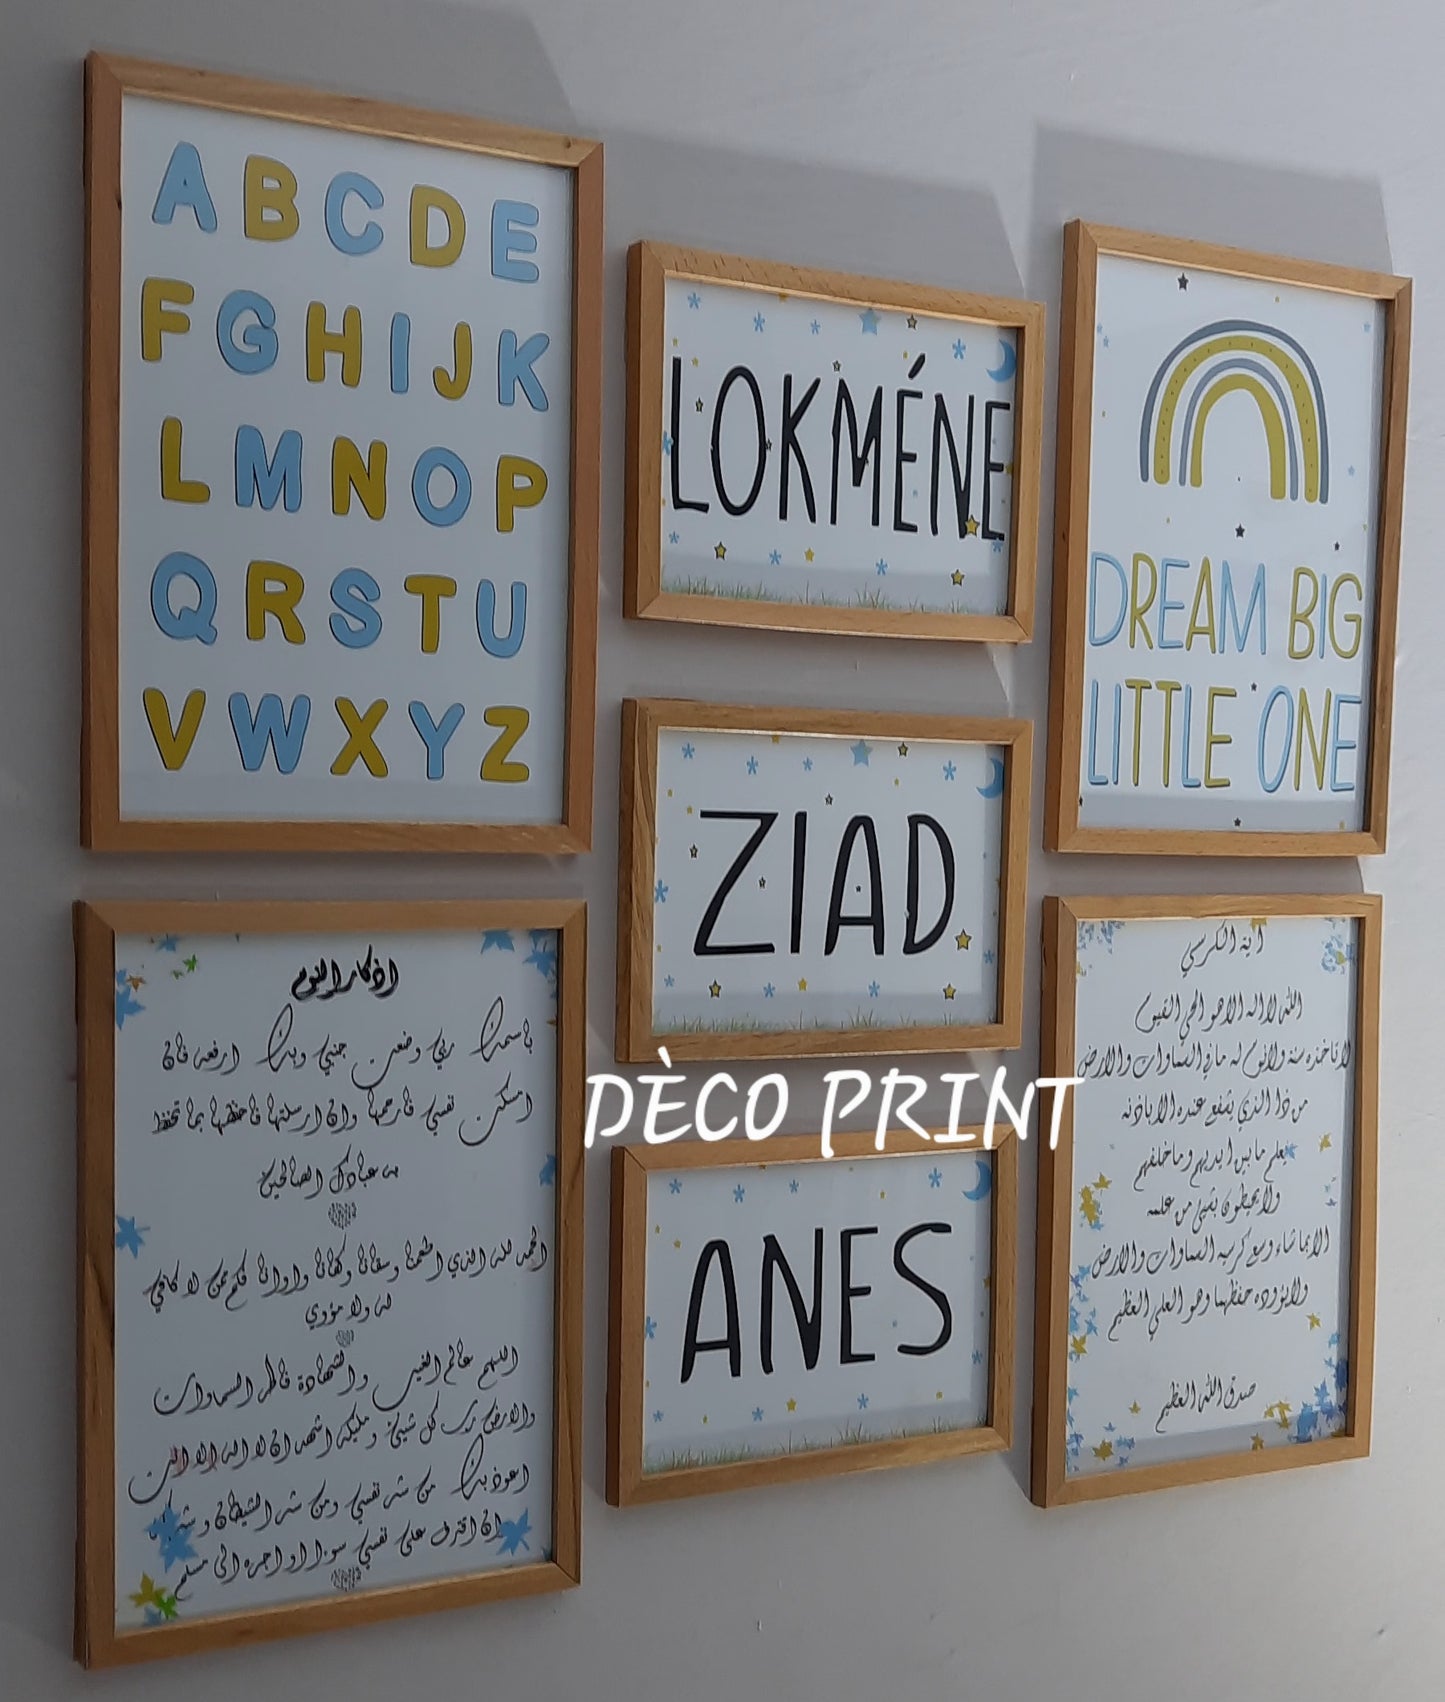 ABCDE
FGHIJK
LMNOP
QRSTU
VWXYZ
LOKMÉNE
ZIAD
ANES
DREAM BIG
LITTLE ONE
اذكار النوم
باسمك ربي وضعت جنبي وبك ارفعه فان
امسكت نفسي فارحمها وان ارسلتها فاحفظها بما تحفظ
به عبادك الصالحين
الحمد لله الذي اطعمنا وسقانا وكفانا واوانا فكم ممن لا كافي
له ولا مؤوي
اللهم عالم الغيب والشهادة فاطر السماوات
والارض رب كل شيئ ومليكه اشهد ان لا اله الا انت
اعوذ بك من شر نفسي ومن شر الشيطان وشركه
وان اقترف على نفسي سوءا او اجره الى مسلم
اية الكرسي
الله لا اله الا هو الحي القيوم
لا تاخذه سنة ولا نوم له ما في السماوات والارض
من ذا الذي يشفع عنده الا باذنه
يعلم ما بين ايديهم وما خلفهم
ولا يحيطون بشيئ من علمه
الا بما شاء وسع كرسيه السماوات والارض
ولا يؤوده حفظهما وهو العلي العظيم
صدق الله العظيم
DÈCO PRINT